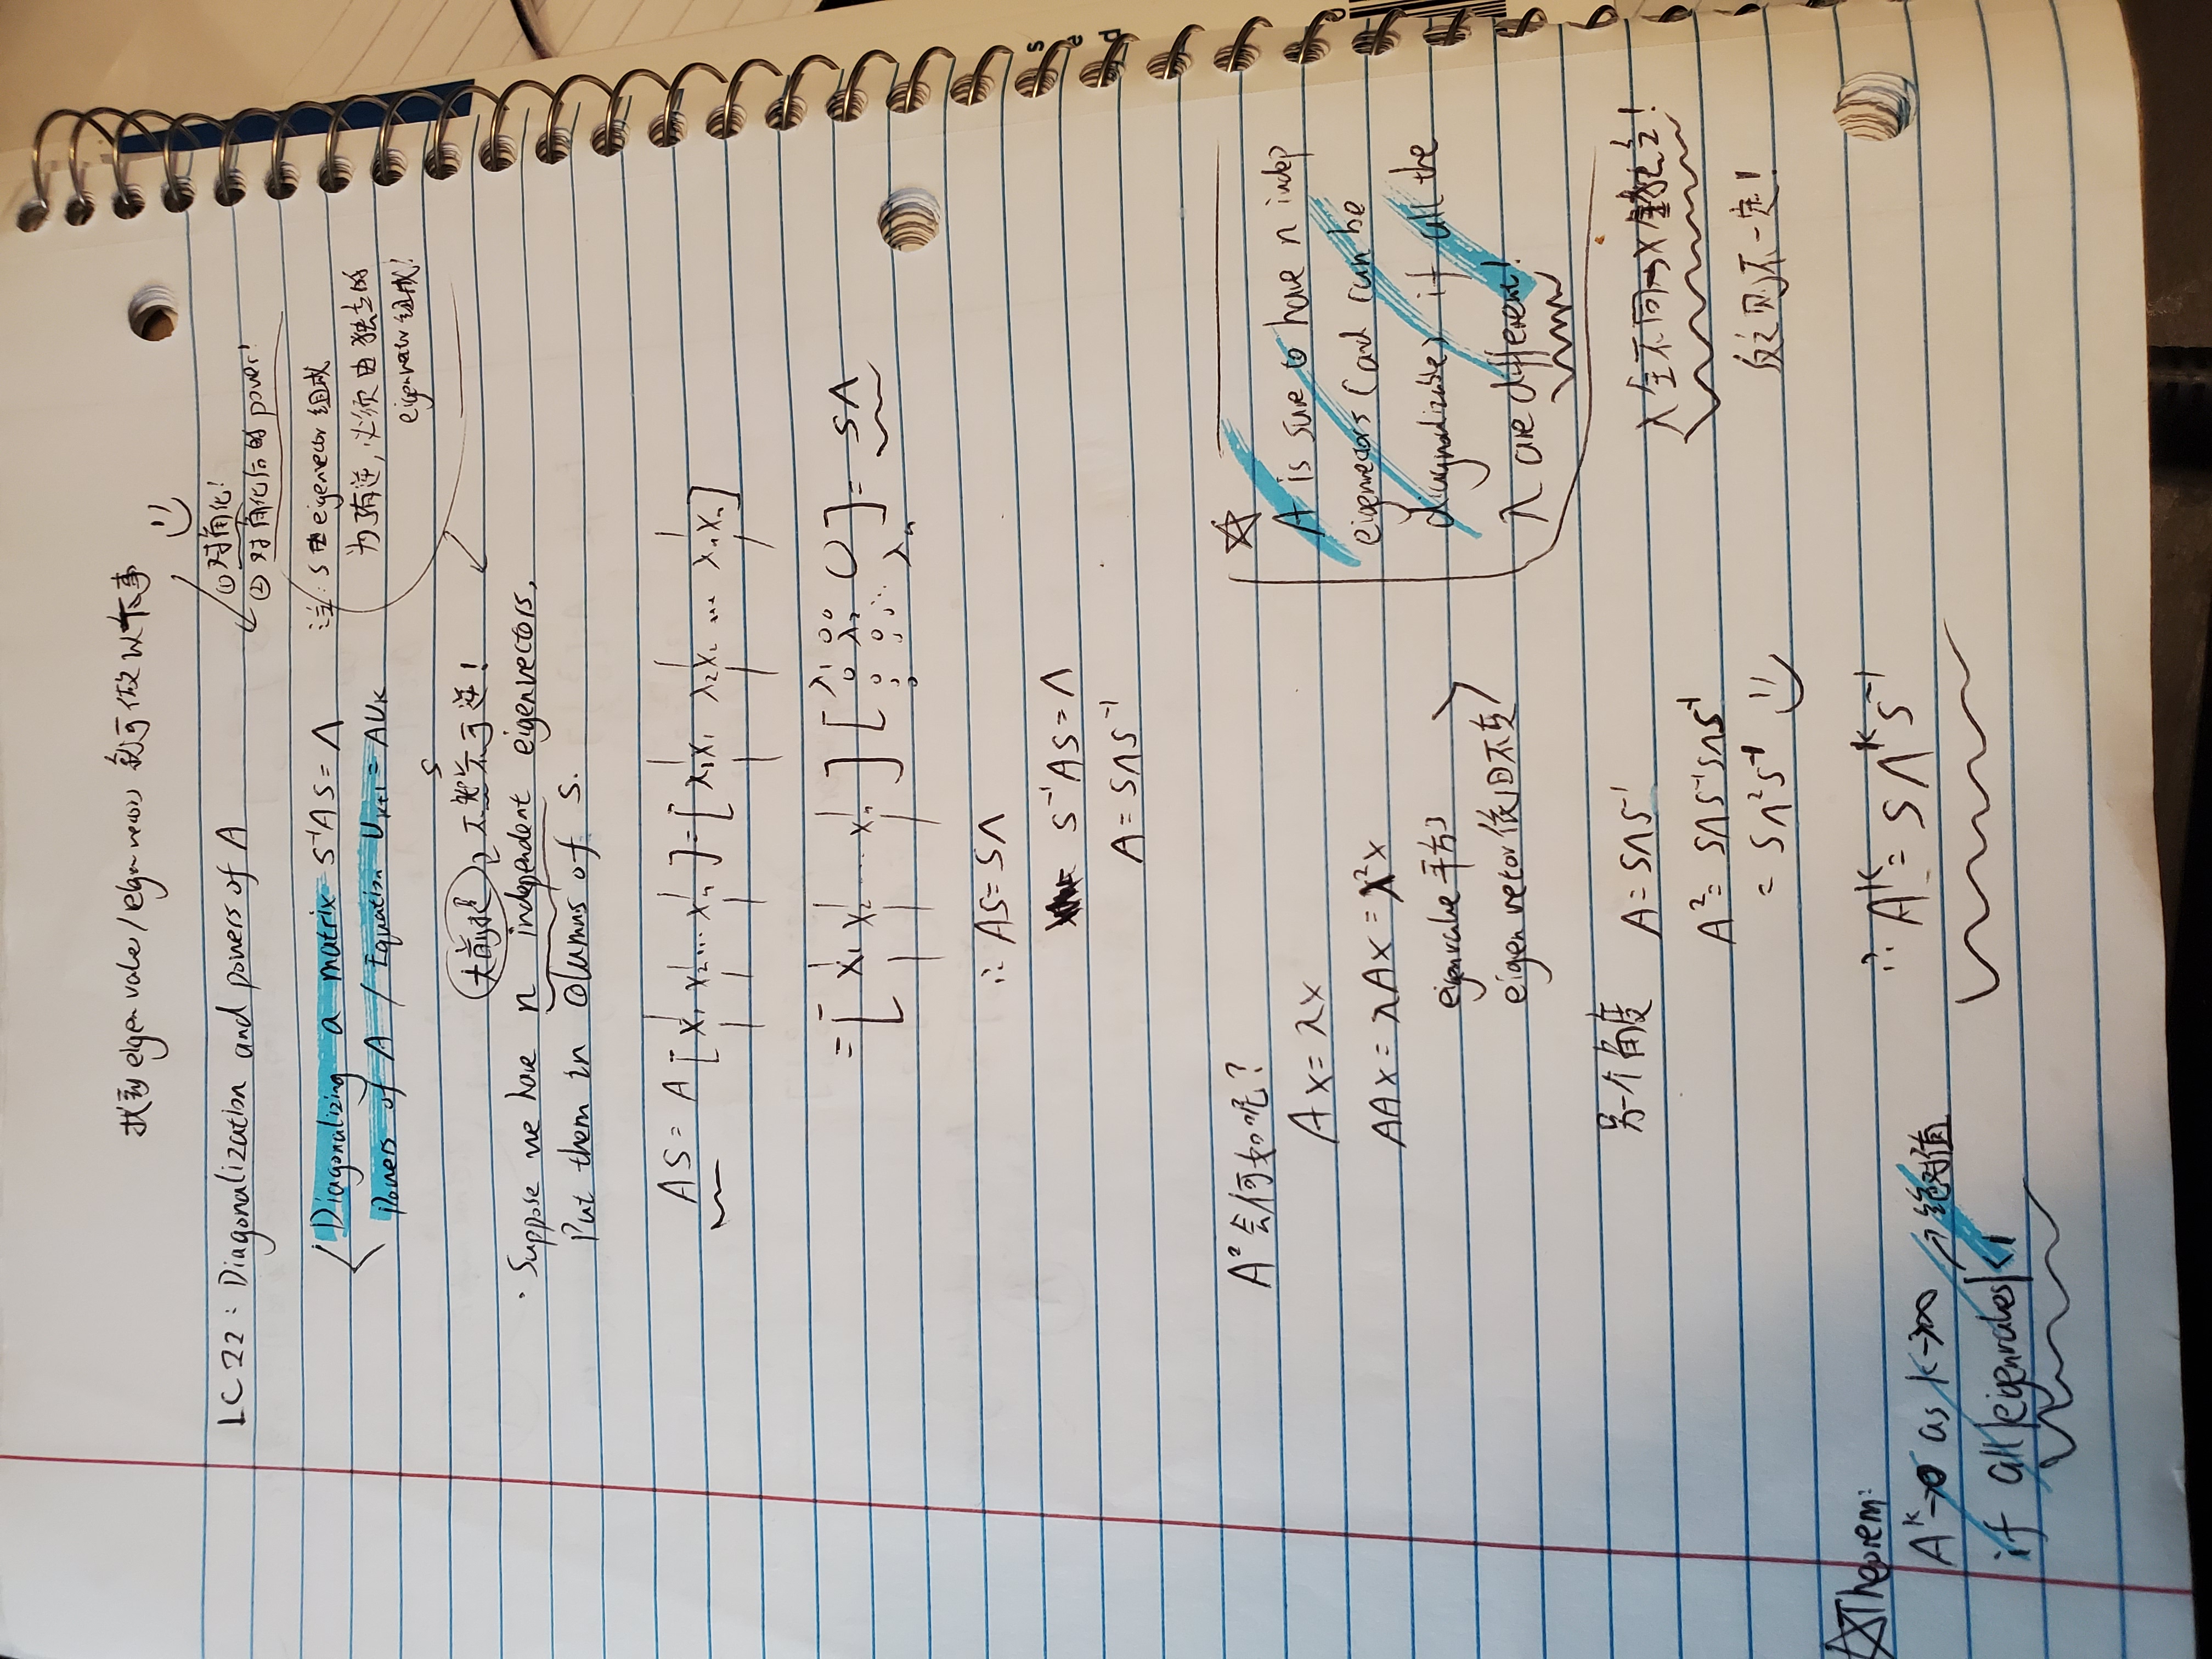 找到 eigenvalue/eigenvector 就可做以下事
① 对角化!
② 对角化后的 power!
LC 22: Diagonalization and powers of A
Diagonalizing a matrix S⁻¹AS = Λ
Powers of A / Equation Uₖ₊₁ = AUₖ
注: S 由 eigenvector 组成
为了有逆, 必须由独立的
eigenvector 组成!
S
大前提, 不然不可逆!
· Suppose we have n independent eigenvectors,
Put them in columns of S.
AS = A [x₁ x₂ ... xₙ] = [λ₁x₁ λ₂x₂ ... λₙxₙ]
= [x₁ x₂ ... xₙ] [λ₁ 0 0 0 λ₂ 0 0 0 ⋱ λₙ] = SΛ
∴ AS = SΛ
S⁻¹AS = Λ
A = SΛS⁻¹
A² 会何如呢?
Ax = λx
AAx = λAx = λ²x
eigenvalue 平方了
eigenvector 依旧不变
☆
A is sure to have n indep
eigenvectors (and can be
diagnolizable) if all the
λ are different!
λ全不同→x全独立!
反之则不一定!
另一个角度 A = SΛS⁻¹
A² = SΛS⁻¹SΛS⁻¹
= SΛ²S⁻¹
∴ Aᵏ = SΛᵏS⁻¹
☆Theorem:
Aᵏ→0 as k→∞ → 绝对值
if all |eigenvalues| < 1